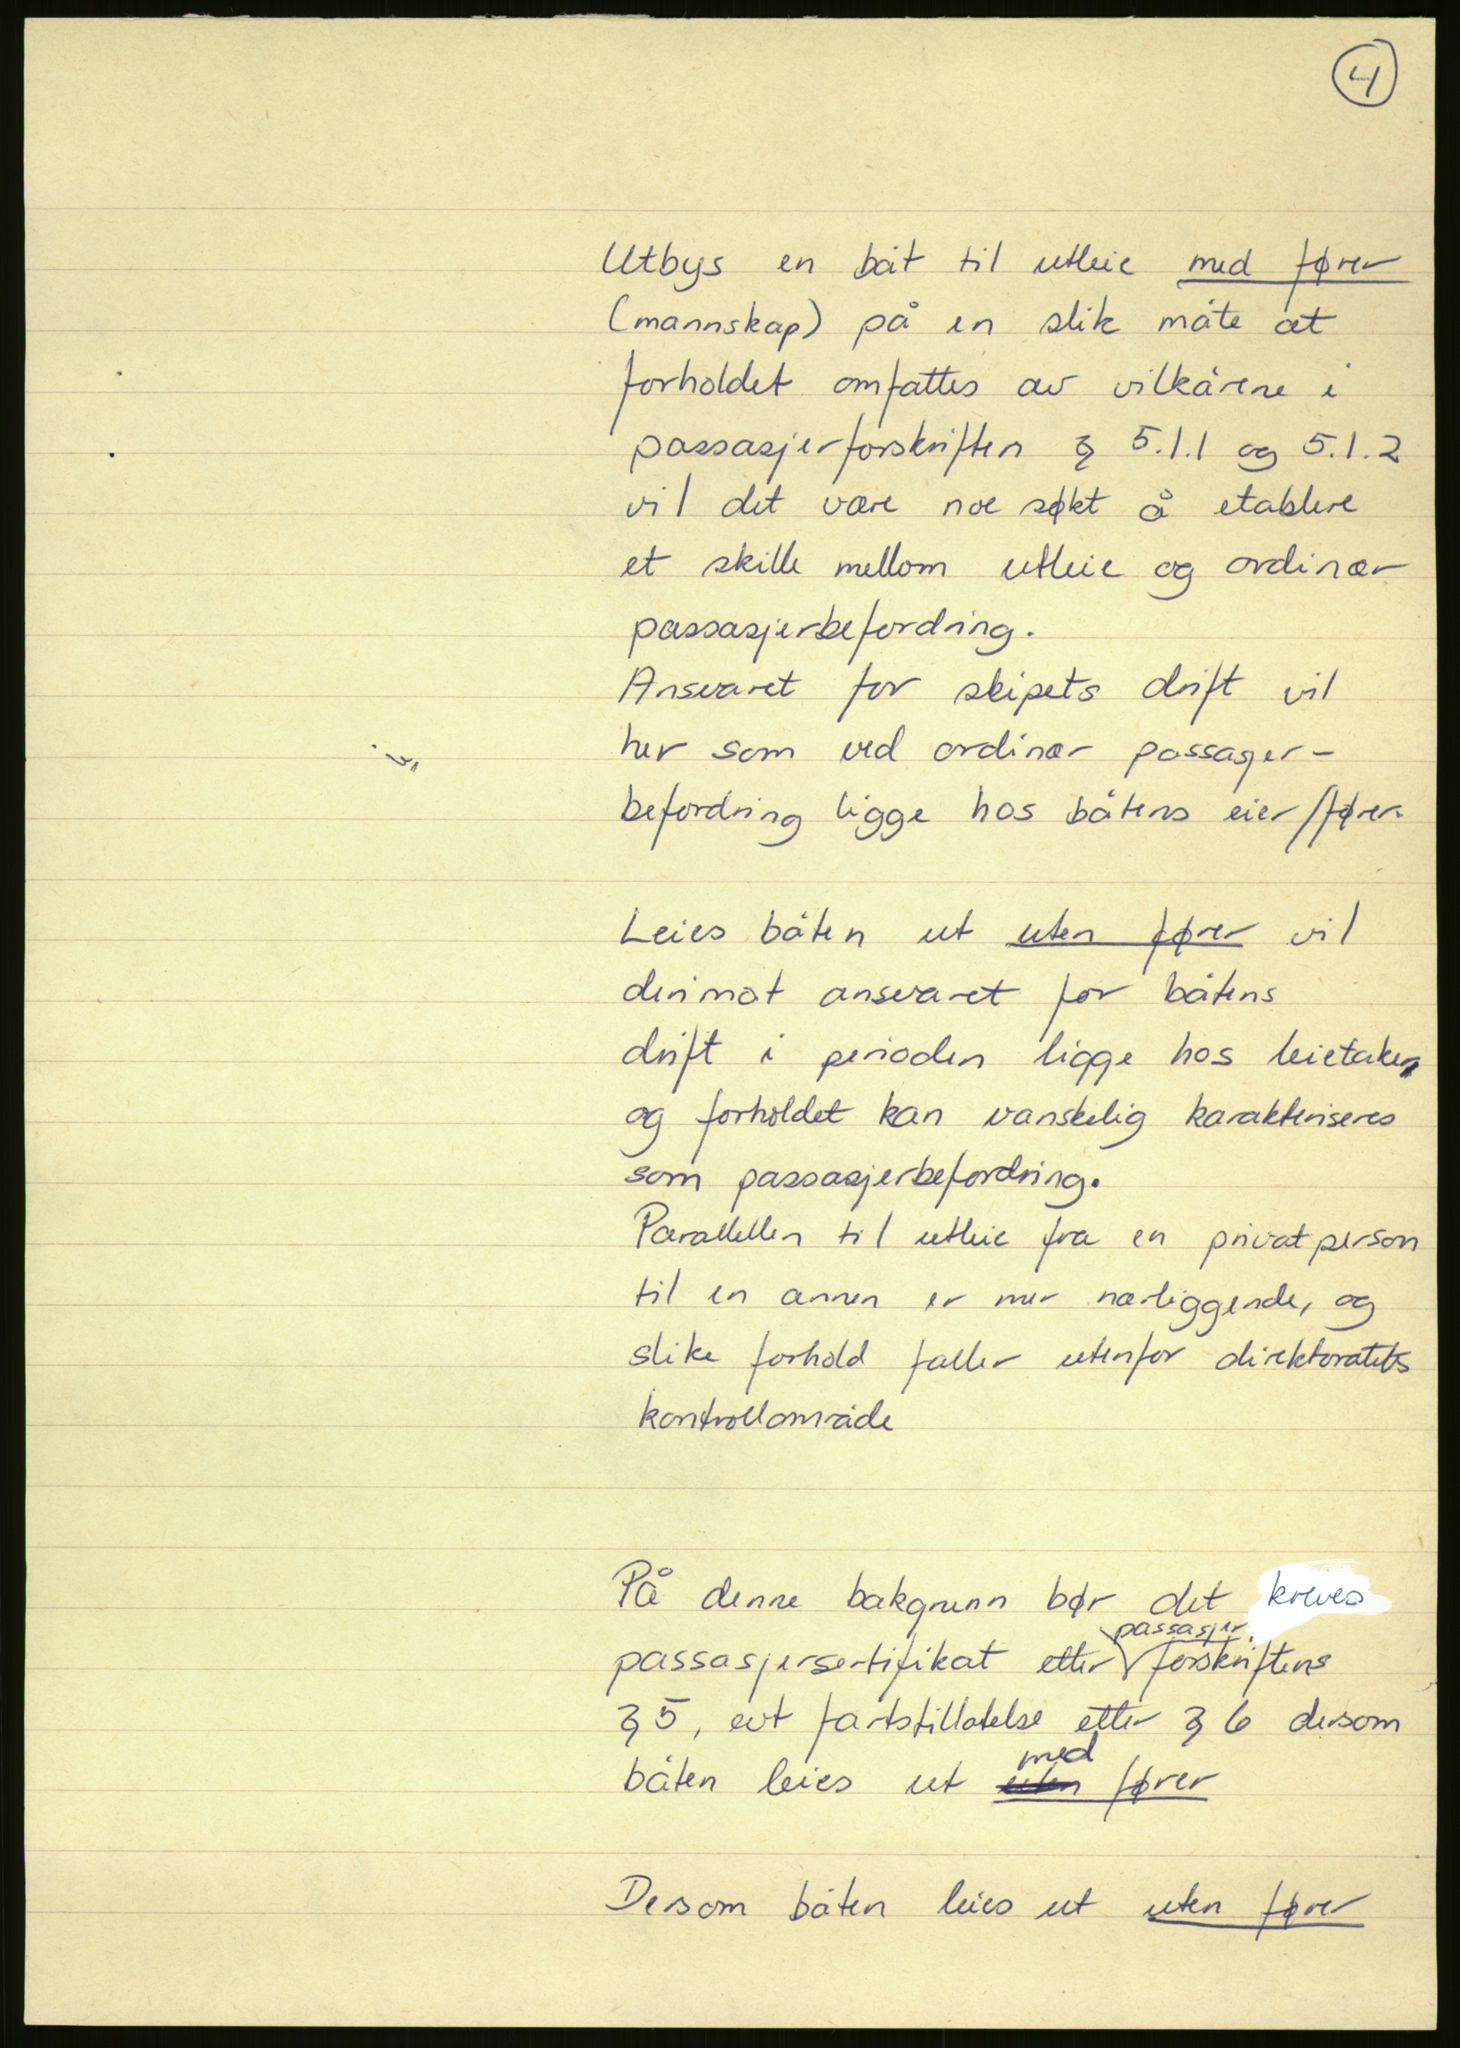 4
Utbys en båt til utleie med fører
(mannskap) på en slik måte at
forholdet omfattes av vilkårene i
passasjerforskriften § 5.1.1 og 5.1.2
vil det være noe søkt å etablere
et skille mellom utleie og ordinær
passasjerbefordring.
Ansvaret for skipets drift vil
her som ved ordinær passasjer-
befordring ligge hos båtens eier/fører.
Leies båten ut uten fører vil
derimot ansvaret for båtens
drift i perioden ligge hos leietaker,
og forholdet kan vanskelig karakteriseres
som passasjerbefordring.
Parallellen til utleie fra en privatperson
til en annen er mer nærliggende, og
slike forhold faller utenfor direktoratets
kontrollområde
På denne bakgrunn bør det kreves
passasjer
passasjersertifikat etter forskriftens
§ 5, evt fartstillatelse etter § 6 dersom
med
båten leies ut uten fører
Dersom båten leies ut uten fører